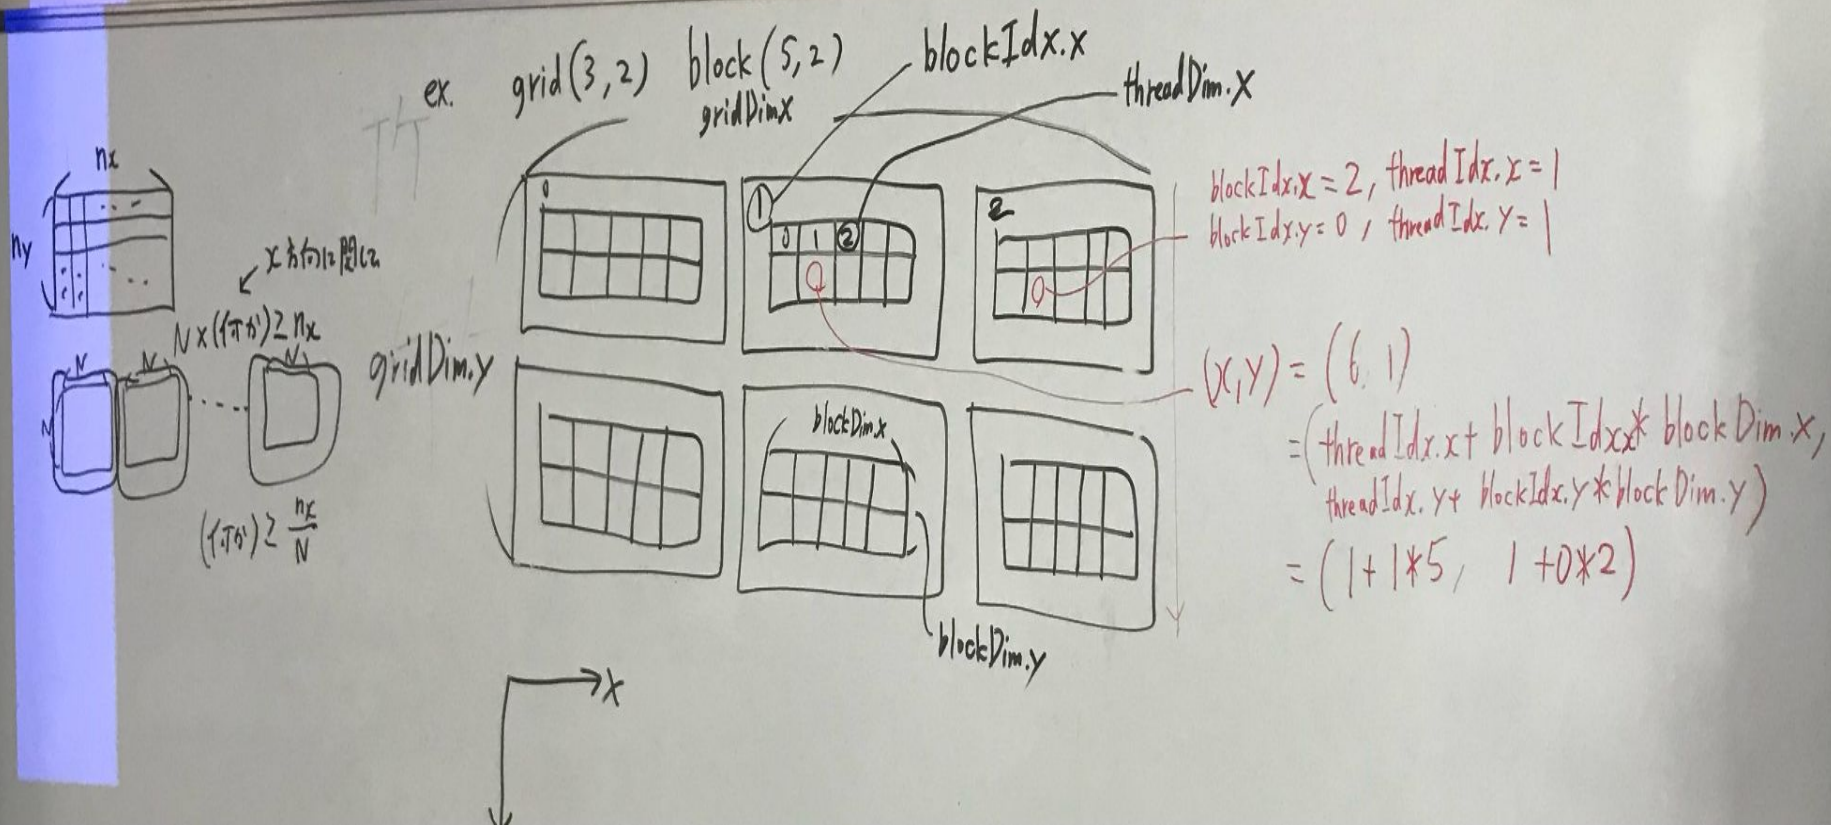 ex. grid(3,2) block(5,2)
blockIdx.x
threadDim.X
gridDimX
nx
ny
x方向に関して
N×(何か)≥nx
N N N
N
(何か)≥ nx/N
gridDim.y
0
1
0 1 2
2
blockDim.x
blockDim.y
X
blockIdx.x=2, threadIdx.x=1
blockIdx.y=0, threadIdx.y=1
(x,y)=(6,1)
=(threadIdx.x+blockIdx.x*blockDim.x,
threadIdx.y+blockIdx.y*blockDim.y)
=(1+1*5, 1+0*2)